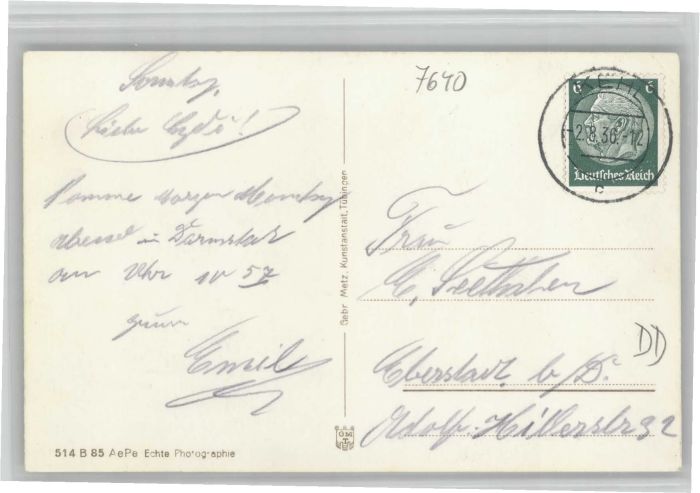 Sonntag,
Liebe Lydi!
Komme morgen Montag
abend in Darmstadt
an Uhr 10 57
Emil
514 B 85 AePe Echte Photographie
Gebr. Metz, Kunstanstalt, Tübingen
GMT
7640
KEHL
-2.8.36.-12
c
6 6
Deutsches Reich
Frau
E. Seethaler
DD
Eberstadt b/D.
Adolf-Hitlerstr 32